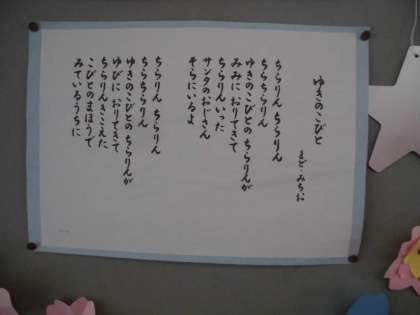 ゆきのこびと
まど・みちお
ちらりん ちらりん
ちらちらりん
ゆきのこびとの ちらりんが
みみに おりてきて
ちらりん いった
サンタのおじさん
そらにいるよ
ちらりん ちらりん
ちらちらりん
ゆきのこびとの ちらりんが
ゆびに おりてきて
ちらりん きこえた
こびとのまほうで
みているうちに